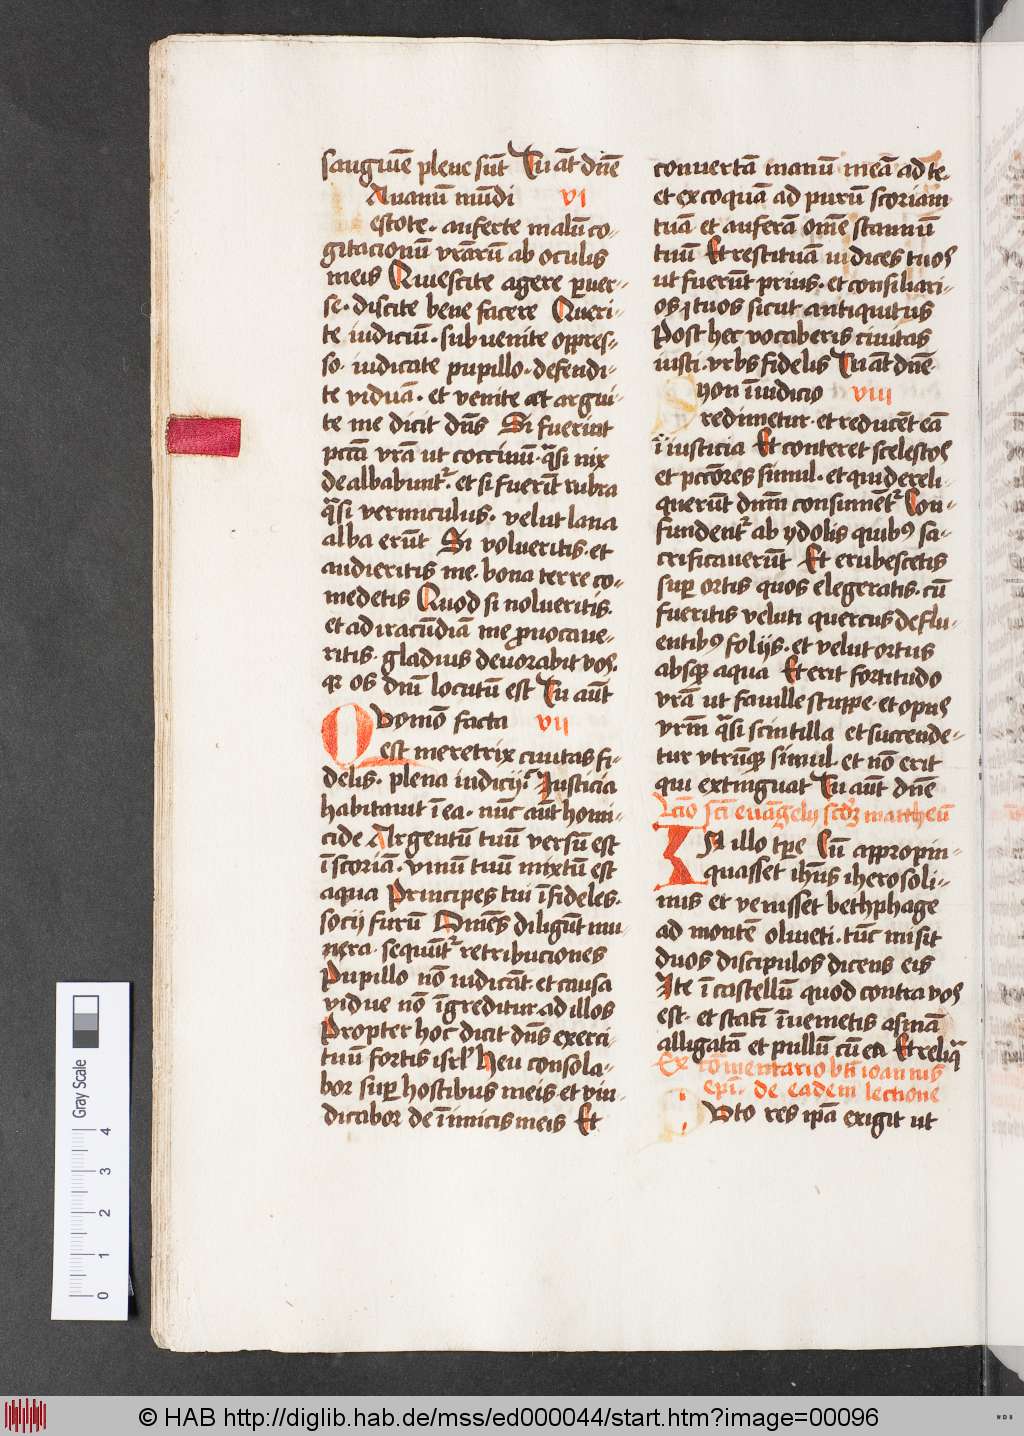 sanguīe plene sūt Tu āt dn̄e
Auanū mūdi vi
estote · auferte malū co-
gitacionū vr̄arū ab oculis
meis Quiescite agere ꝑuer-
se · discite bene facere Queri-
te iudiciū · subuenite oppres-
so · iudicate pupillo · defendi-
te viduā · et venite et argui-
te me dicit dn̄s Si fuerint
pct̄a vr̄a ut coccinū · q̄si nix
dealbabuntr᷑ · et si fuerīt rubra
q̄si vermiculus · velut lana
alba erūt Si volueritis · et
audieritis me · bona terre co-
medetis Quod si nolueritis ·
et ad iracūdiā me ꝓuocaue-
ritis · gladius deuorabit vos ·
qꝛ os dn̄i locutū est Tu aūt
Quomō facta vii
est meretrix ciuitas fi-
delis · plena iudicij Iusticia
habitauit ī ea · nūc aūt homi-
cide Argentū tuū versū est
ī scoriā · vinū tuū mixtū est
aqua Principes tui īfideles ·
socij furū Om̄es diligūt mu-
nera · sequūtr᷑ retribuciones
Pupillo nō iudicāt · et causa
vidue nō īgreditur ad illos
Propter hoc dicit dn̄s exerci-
tuū fortis isrl̄ Heu consola-
bor suꝑ hostibus meis · et vin-
dicabor de īimicis meis Et
conuertā manū meā ad te ·
et excoquā ad purū scoriam
tuā et auferā om̄e stannū
tuū Et restituā iudices tuos
ut fuerūt prius · et consiliari-
os tuos sicut antiquitus
Post hec vocaberis ciuitas
iusti · vrbs fidelis Tu āt dn̄e
Syon ī iudicio viii
redimetur · et reducēt eā
ī iusticia Et conteret scelestos
et pctōres simul · et qui dereli-
querūt dnm̄ consumētr᷑ Con-
fundentr᷑ ab ydolis quibꝰ sa-
crificauerūt Et erubescetis
suꝑ ortis quos elegeratis · cū
fueritis veluti quercus deflu-
entibꝰ folijs · et velut ortus
absqꝫ aqua Et erit fortitudo
vr̄a ut fauille stuppe · et opus
vrm̄ q̄si scintilla et succende-
tur vtrūqꝫ simul · et nō erit
qui extinguat Tu aūt dn̄e
Lc̄io sc̄i euāgelij scd̄ꝫ matheū
IN illo tꝑe Cū appropin-
quasset ihūs iherosoli-
mis et venisset bethphage
ad montē oliueti · tūc misit
duos discipulos dicens eis
Ite ī castellū quod contra vos
est · et statī īuenietis asinā
alligatā et pullū cū ea Et reliq̄
Ex cōmentario bt̄i ioannis
epī · de eadem lectione
Puto res ip̄a exigit ut
Gray Scale
0 1 2 3 4
© HAB http://diglib.hab.de/mss/ed000044/start.htm?image=00096
WDB